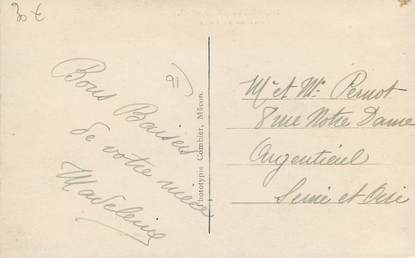 30 €
91
Bons Baisers
de votre nièce
Madeleine
Phototypie Combier, Mâcon.
Mr et Me Pernot
8 rue Notre Dame
Argenteuil
Seine et Oise